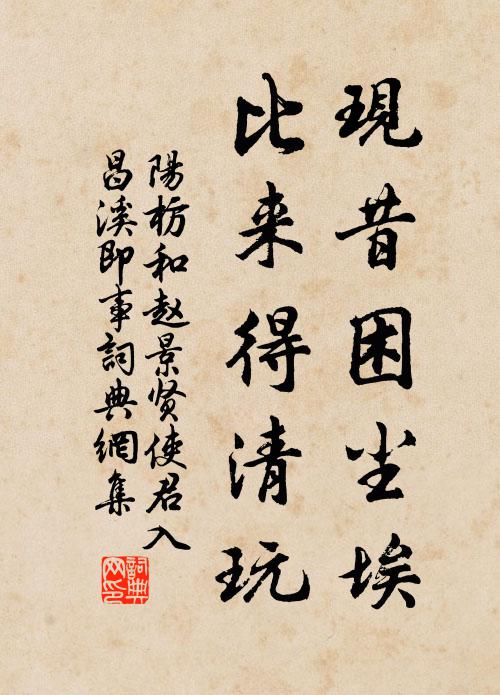 現昔困尘埃
比来得清玩
陽枋和赵景贤使君入
昌溪即事詞典網集
詞典网印